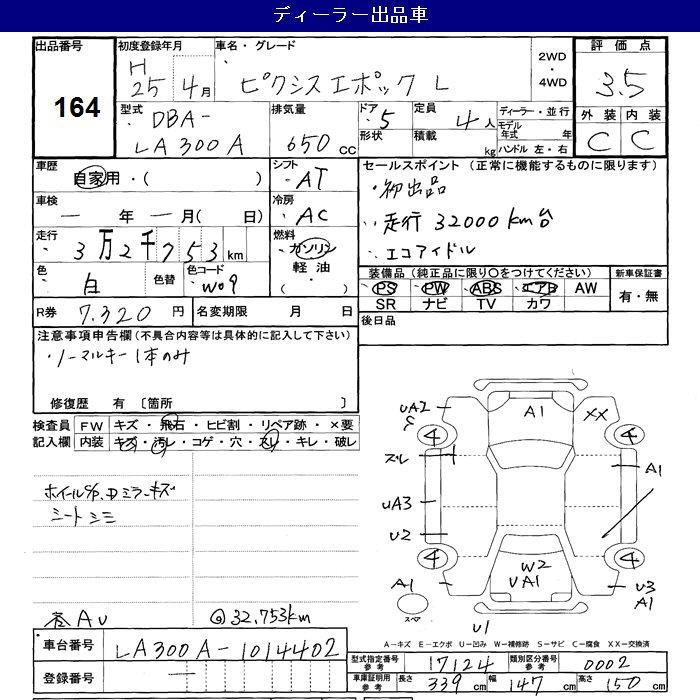 ディーラー出品車
出品番号 164
初度登録年月 H 25年 4月
車名・グレード ピクシスエポック L
2WD・4WD
評価点 3.5
外装 C 内装 C
型式 DBA-LA300A
排気量 650cc
ドア 5 形状
定員 4人 積載 kg
ディーラー・並行
モデル年式 年
ハンドル 左・右
車歴 自家用・( )
シフト AT
セールスポイント (正常に機能するものに限ります)
・初出品
・走行 32000km台
・エコアイドル
車検 ー年ー月( 日)
冷房 AC
走行 3万2千753km
燃料 ガソリン 軽油・( )
色 白 色替 色コード W09
装備品(純正品に限り○をつけてください)
PS PW ABS エアB AW
SR ナビ TV カワ
新車保証書 有・無
R券 7,320円 名変期限 月 日
後日品
注意事項申告欄(不具合内容等は具体的に記入して下さい)
・ノーマルキー1本のみ
修復歴 有 〔箇所 〕
検査員記入欄
FW キズ・飛石・ヒビ割・リペア跡・×要
内装 キズ・汚レ・コゲ・穴・スレ・キレ・破レ
ホイールS/P、Dミラーキズ
シートシミ
AU
32,753km
A1
XX
UA2
4
4
ズレ
A1
UA3
U2
4
4
W2
UA1
A1
U3
A1
スペア
U1
A-キズ E-エクボ U-凹み W-補修跡 S-サビ C-腐食 XX-交換済
車台番号 LA300A-1014402
登録番号 ー
型式指定番号 参考 17124 類別区分番号 参考 0002
車庫証明用 参考 長さ 339cm 幅 147cm 高さ 150cm